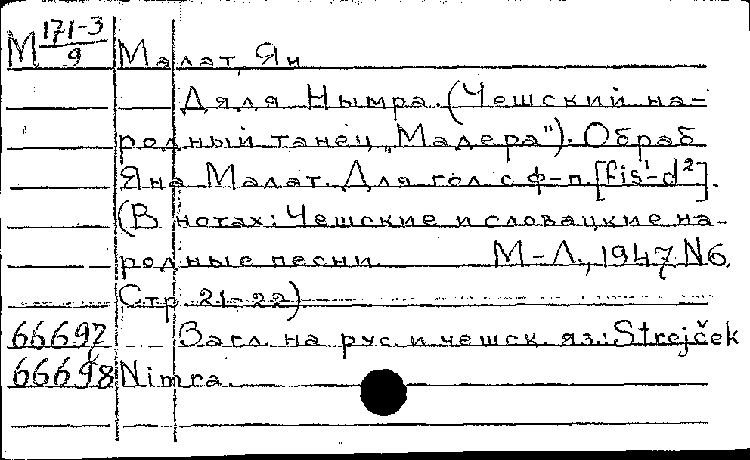 М 171-3/9 Малат, Ян
Дядя Нымра. (Чешский на-
родный танец „Мадера"). Обраб
Яна Малат. Для гол. с ф-п. [fis¹-d²].
(В нотах: Чешские и словацкие на-
родные песни. М-Л., 1947. N6.
Стр. 21-22)
66697 Загл. на рус. и чешск. яз.: Strejček
66698 Nimra.